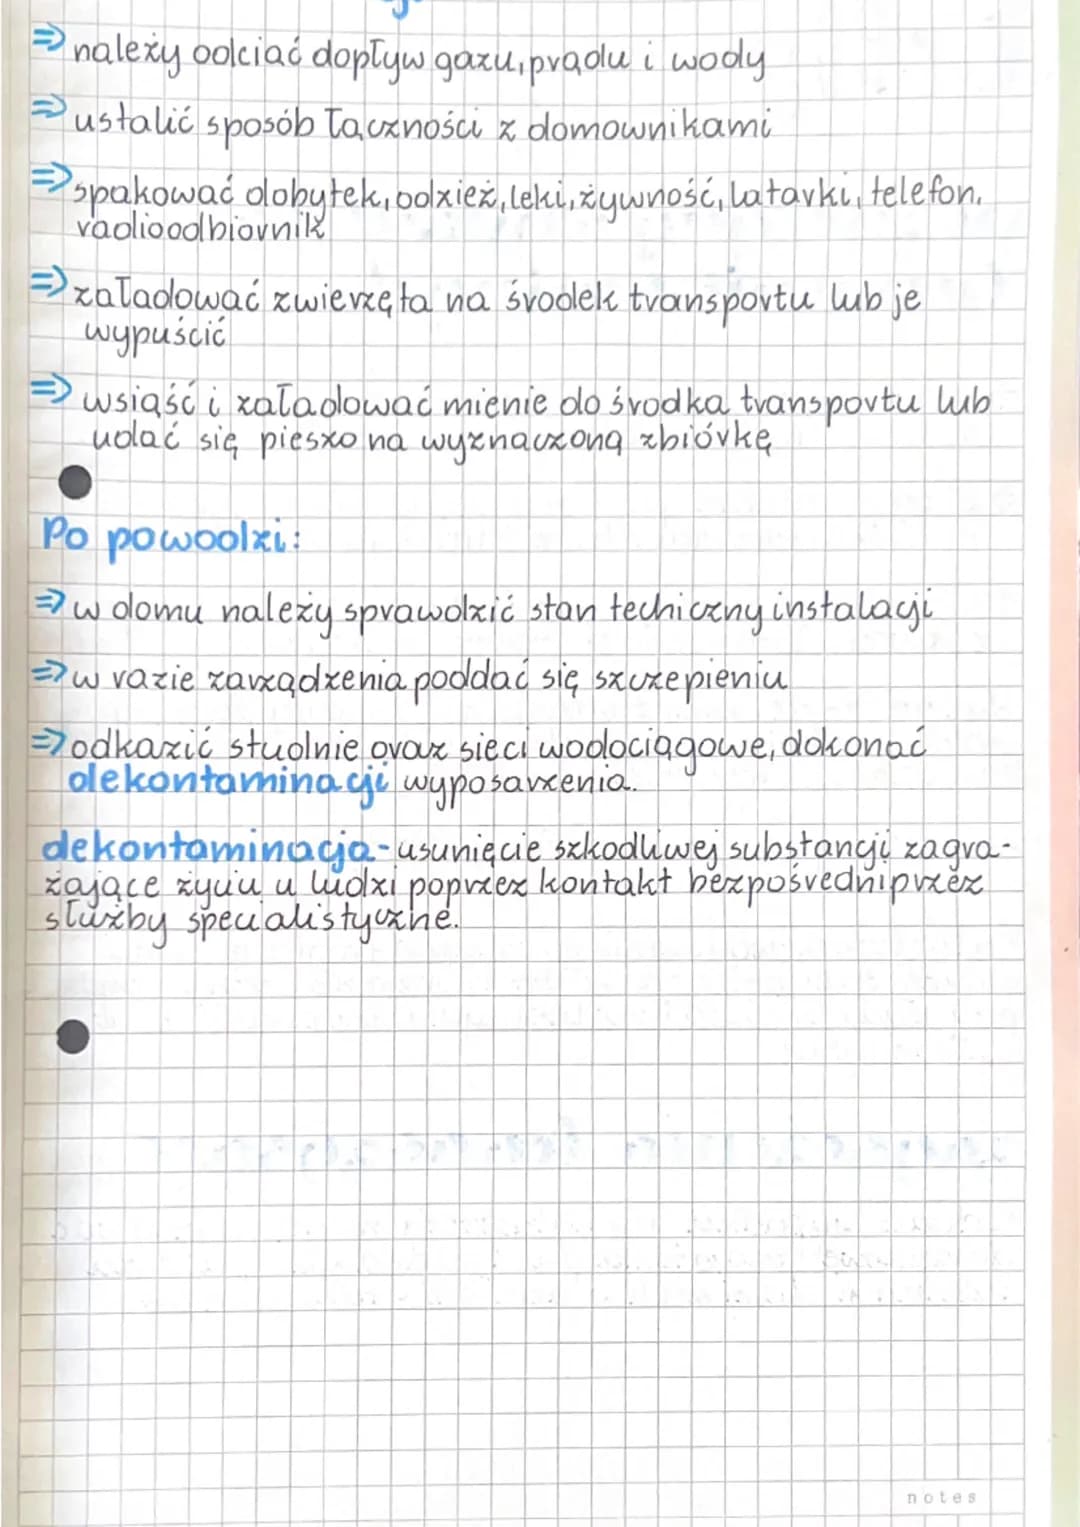 ⇒ należy odciąć dopływ gazu, prądu i wody
⇒ ustalić sposób łączności z domownikami
⇒ spakować dobytek, odzież, leki, żywność, latarki, telefon,
radioodbiornik
⇒ załadować zwierzęta na środek transportu lub je
wypuścić
⇒ wsiąść i załadować mienie do środka transportu lub
udać się pieszo na wyznaczoną zbiórkę
Po powodzi:
⇒ w domu należy sprawdzić stan techiczny instalacji
⇒ w razie zarządzenia poddać się szczepieniu
⇒ odkazić studnie oraz sieci wodociągowe, dokonać
dekontaminacji wyposarzenia.
dekontaminacja - usunięcie szkodliwej substancji zagra-
żające życiu u ludzi poprzez kontakt bezpośredni przez
służby specialistyczne.
notes